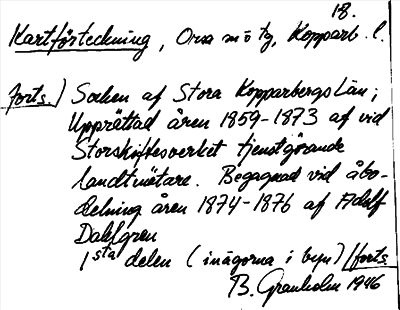 18.
Kartförteckning, Orsa m ö tg, Kopparb. l.
forts.) Socken af Stora Kopparbergs Län;
Upprättad åren 1859-1873 af vid
Storskiftesverket tjenstgörande
Landtmätare. Begagnad vid åbo-
delning åren 1874-1876 af Adolf
Dahlgren
1sta delen (inägorna i byn) / forts.
B. Granholm 1946